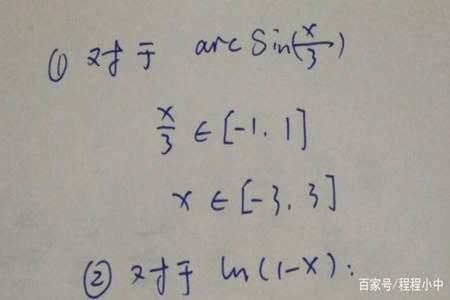 ① 对于 arcSin(x/3)
x/3 ∈ [-1, 1]
x ∈ [-3, 3]
② 对于 ln(1-x):
百家号/程程小中